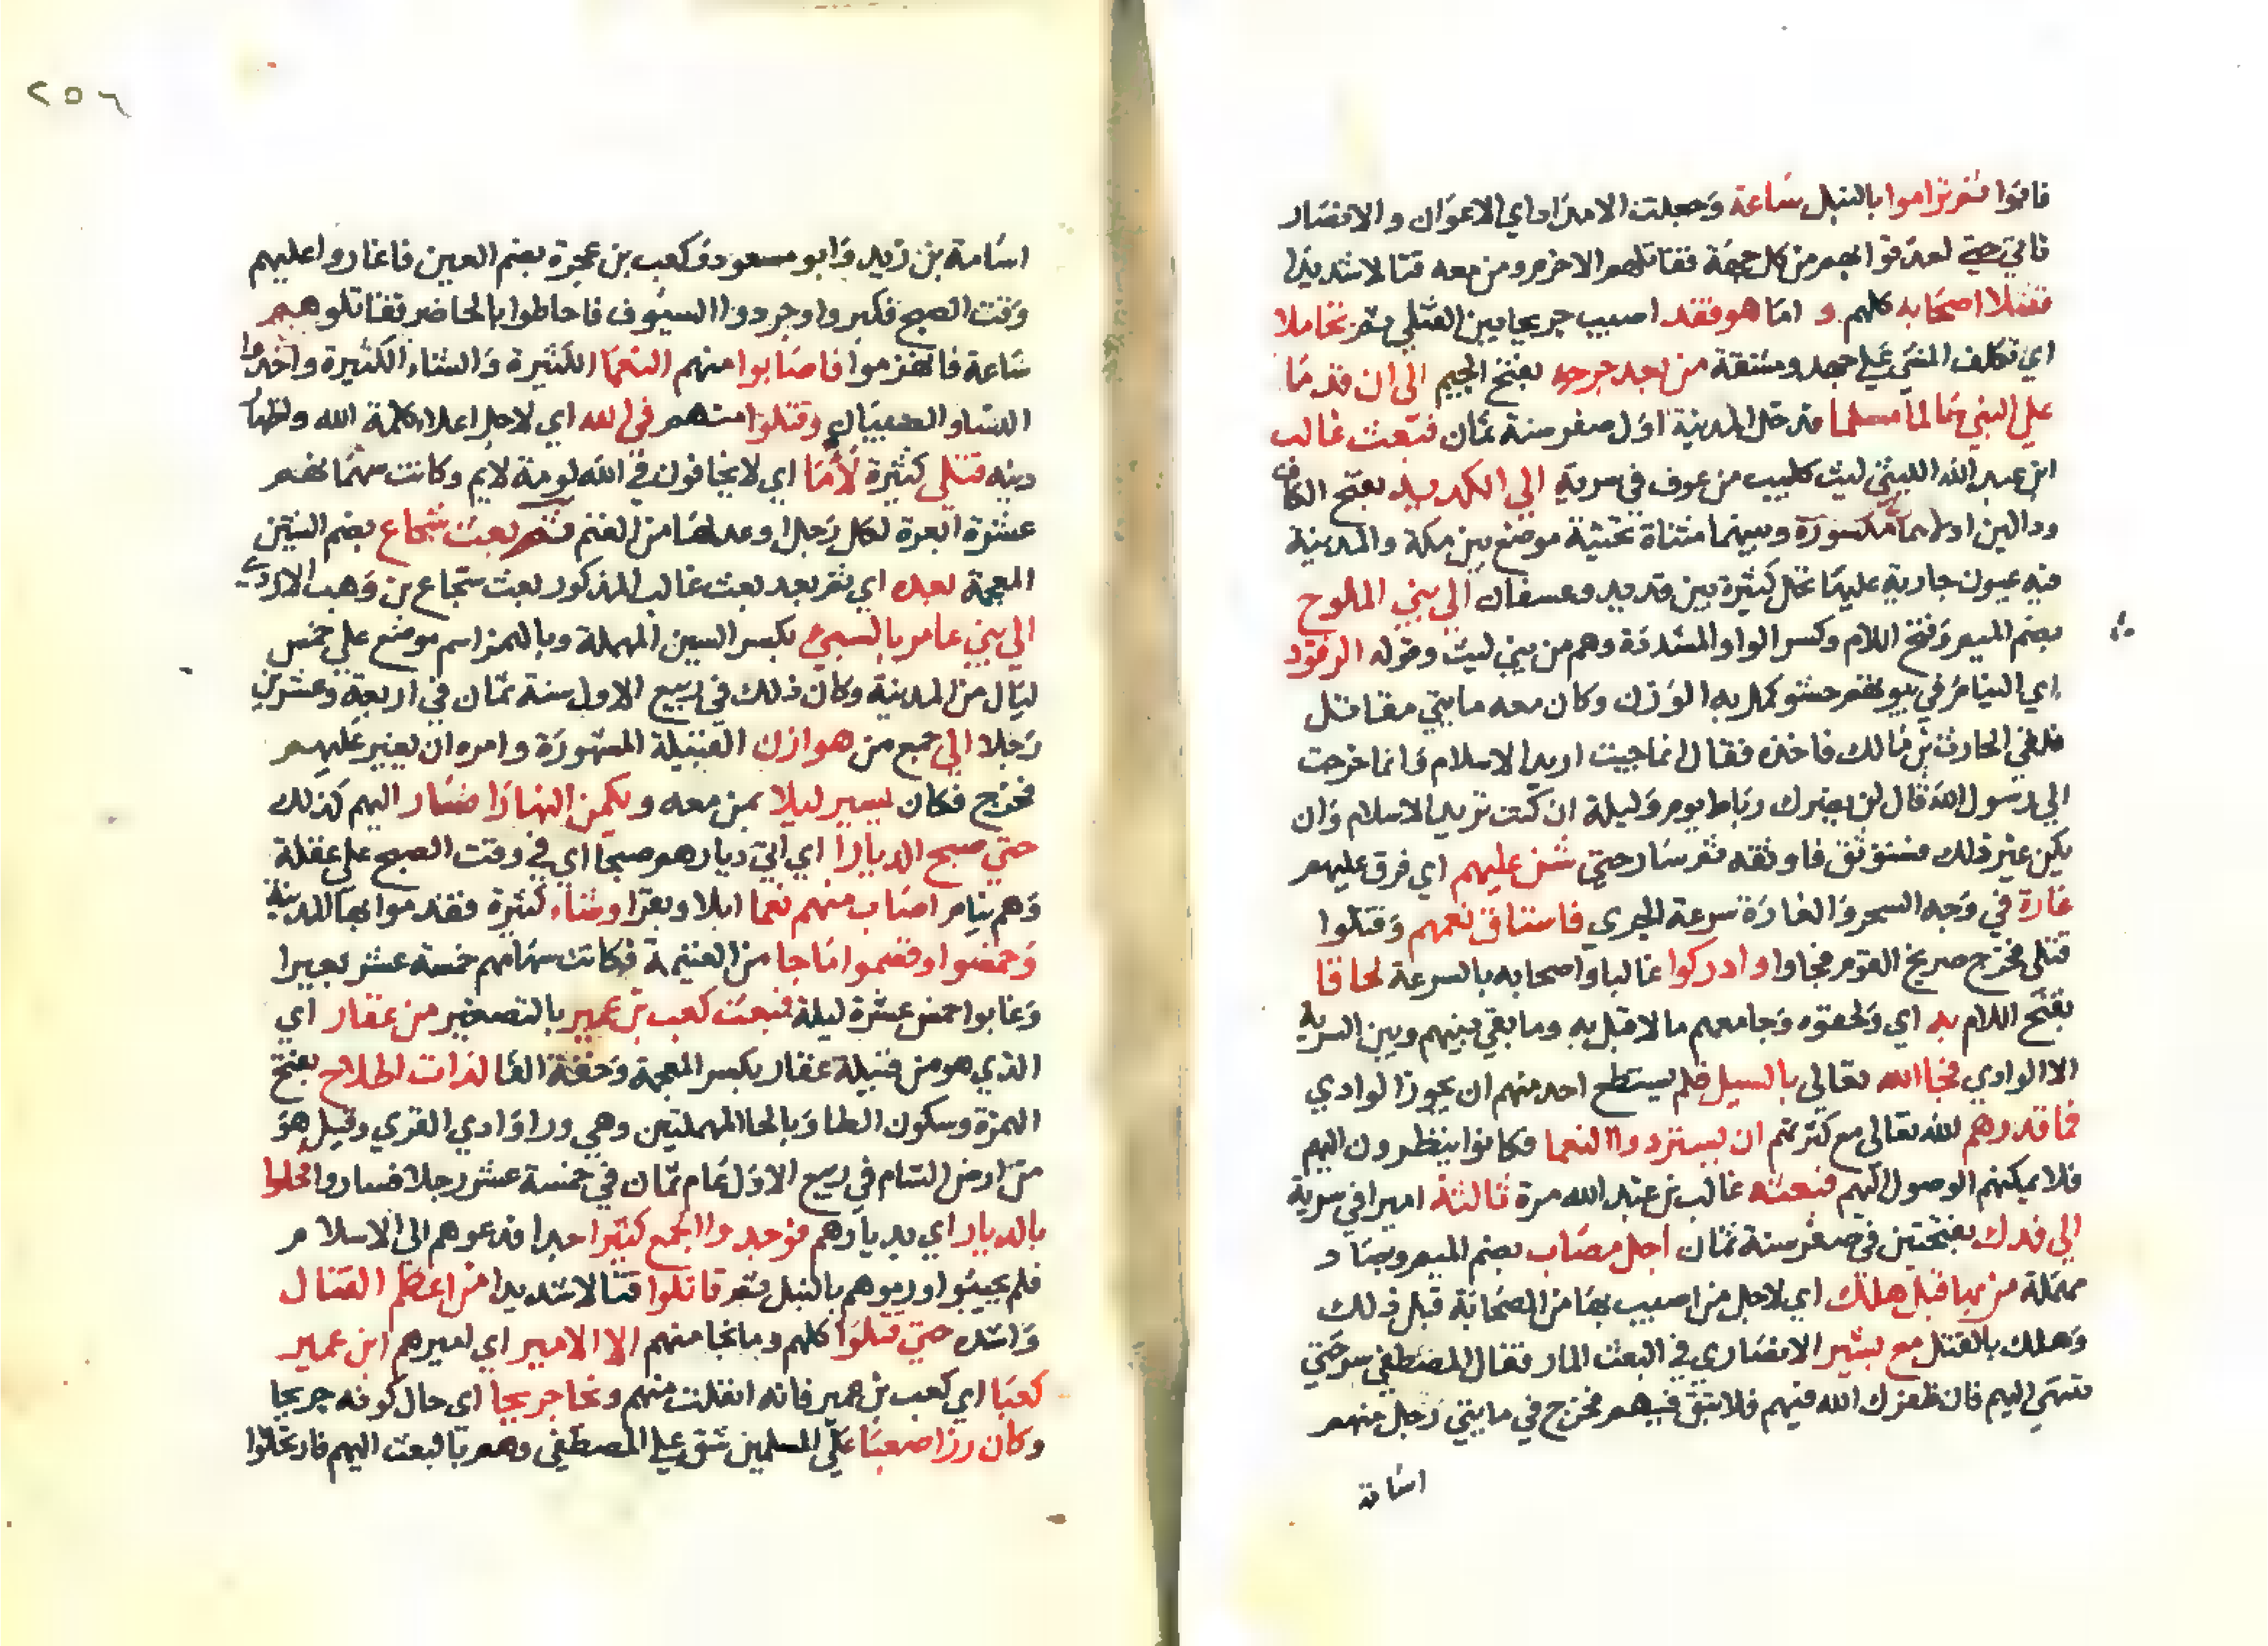 فابوا ثم تراموا بالنبل ساعة وجعلت الامداد اي الاعوان والانصار
فاتي حتي لعدو الجمع من كل جهة فقاتلهم الاخرم ومن معه قتالا شديدا
فقتلا اصحابه كلهم و اما هو فقد اصيب جريحا بين القتلي ثم تحاملا
اي تكلف المشي علي جهد ومشقة من بعد جرحه بفتح الجيم الي ان قدما
علي النبي سالما مسلما فدخل المدينة اول صفر سنة ثمان فبعث غالب
ابن عبد الله الليثي ليث كليب من عوف في سرية الي الكديد بفتح الكاف
ودالين اولاهما مكسورة وبينهما مثناة تحتية موضع بين مكة والمدينة
فيه عيون جارية عليها نخل كثيرة بين قديد وعسفان الي بني الملوح
بضم الميم وفتح اللام وكسر الواو المشددة وهم من بني ليث وقوله الرقود
اي النيام في بيوتهم حشو كمل به الوزن وكان معه مايتي مقاتل
فلقي الحارث بن مالك فاخذه فقال انما جيت اريد الاسلام وانما خرجت
الي رسول الله قال لن يضرك رباط يوم وليلة ان كنت تريد الاسلام وان
يكن غير ذلك فنستوثق فاوثقه ثم سار حتي شن عليهم اي فرق عليهم
غارة في وجه السحر والغارة سرعة الجري فاستاق نعمهم وقتلوا
قتلي فخرج صريخ القوم فجاوا وادركوا غالبا واصحابه بالسرعة لحاقا
بفتح اللام به اي ولحقوه وجامعهم ما لا قبل به وما بقي بينهم وبين السرية
الا الوادي فجا الله تعالي بالسيل فلم يستطع احد منهم ان يجوز الوادي
فما قدرهم الله تعالي مع كثرتهم ان يستردوا النعما فكانوا ينظرون اليهم
فلا يمكنهم الوصول اليهم فبعثه غالب بن عبد الله مرة ثالثة اميرا في سرية
الي فدك بفتحتين في صفر سنة ثمان اجل مصاب بضم الميم وبصاد
مهملة من بها قبل هلك اي لاجل من اصيب بها من الصحابة قبل ذلك
وهلك بالقتل مع بشير الانصاري في البعث المار فقال المصطفي سر حتي
تنتهي اليهم فان ظفرك الله فيهم فلا تبق فيهم فخرج في مايتي رجل منهم
اسامة
٢٥٦
اسامة بن زيد وابو مسعود وكعب بن عجرة بضم العين فاغاروا عليهم
وقت الصبح فكبروا وجردوا السيوف فاحاطوا بالحاضر فقاتلوهم
ساعة فانهزموا فاصابوا منهم النعما الكثيرة والشاء الكثيرة واخذوا
النساء والصبيان وقتلوا منهم في الله اي لاجل اعلاء كلمة الله ولظهار
دينه قتلي كثيرة لأما اي لا يخافون في الله لومة لايم وكانت سهمانهم
عشرة ابعرة لكل رجل او عدلها من الغنم ثم بعث شجاع بضم الشين
المعجمة بعده اي ثم بعد بعث غالب المذكور بعث شجاع بن وهب الازدي
الي بني عامر بالسيئ بكسر السين المهملة وبالهمز اسم موضع علي خمس
ليال من المدينة وكان ذلك في ربيع الاول سنة ثمان في اربعة وعشرين
رجلا الي جمع من هوازن القبيلة المشهورة وامره ان يغير عليهم
فخرج فكان يسير ليلا بمن معه ويكمن النهارا فسار اليهم كذلك
حتي صبح الديارا اي اتي ديارهم صبحا اي في وقت الصبح علي غفلة
وهم نيام اصاب منهم نعما ابلا وبقرا وشاء كثيرة فقدموا بها المدينة
وخمسوا وقسموا ما جا من الغنيمة فكانت سهامهم خمسة عشر بعيرا
وغابوا خمس عشرة ليلة فبعث كعب بن عمير بالتصغير من غفار اي
الذي هو من قبيلة غفار بكسر المعجمة وخفة الفا لذات اطلاح بفتح
الهمزة وسكون الطا وبالحا المهملتين وهي ورا وادي القري وقيل هو
من ارض الشام في ربيع الاول عام ثمان في خمسة عشر رجلا فساروا فحلوا
بالديار اي بديارهم فوجدوا الجمع كثيرا جدا فدعوهم الي الاسلام
فلم يجيبوا ورموهم بالنبل ثم قاتلوا قتالا شديدا من اعظم القتال
واشده حتي قتلوا كلهم وما نجا منهم الا الامير اي اميرهم ابن عمير
كعبا اي كعب بن عمير فانه انفلت منهم ونجا جريحا اي حال كونه جريحا
وكان رزا صعبا علي المسلمين شق علي المصطفي وهم بالبعث اليهم فارتحلوا